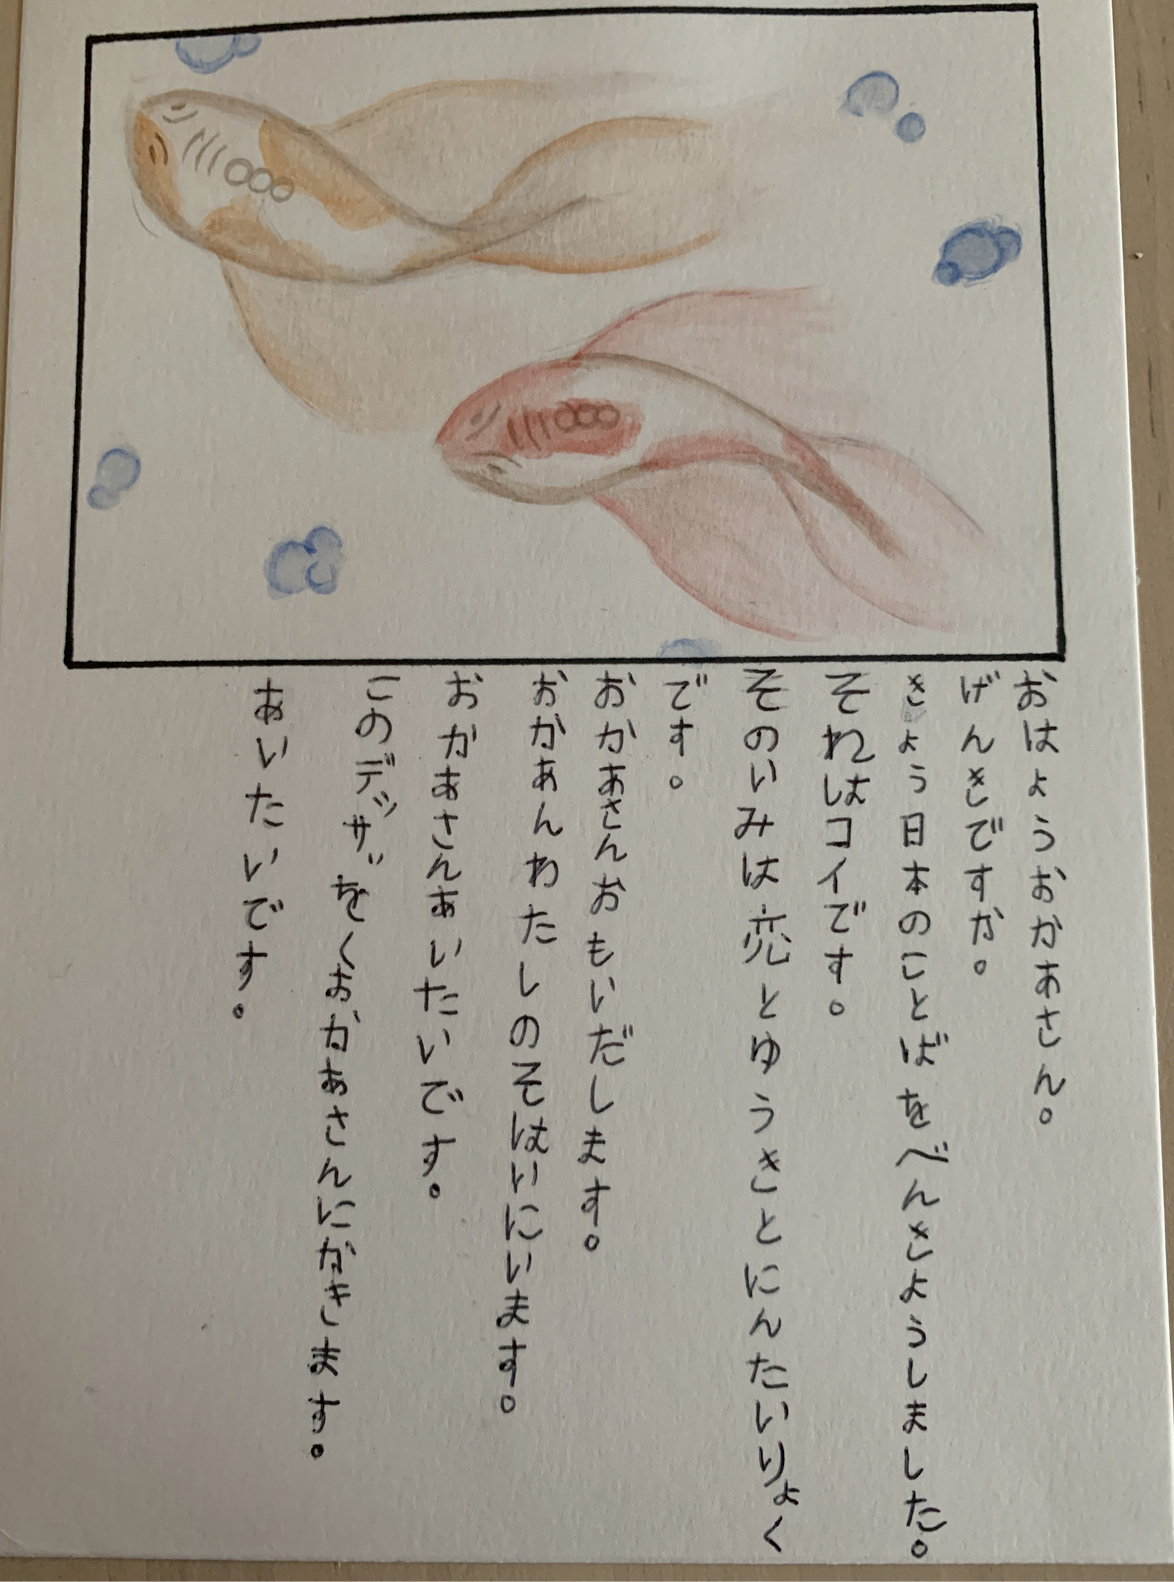 おはようおかあさん。
げんきですか。
きょう日本のことばをべんきようしました。
それはコイです。
そのいみは恋とゆうきとにんたいりょく
です。
おかあさんおもいだします。
おかあんわたしのそはいにいます。
おかあさんあいたいです。
このデッザをくおかあさんにかきます。
あいたいです。